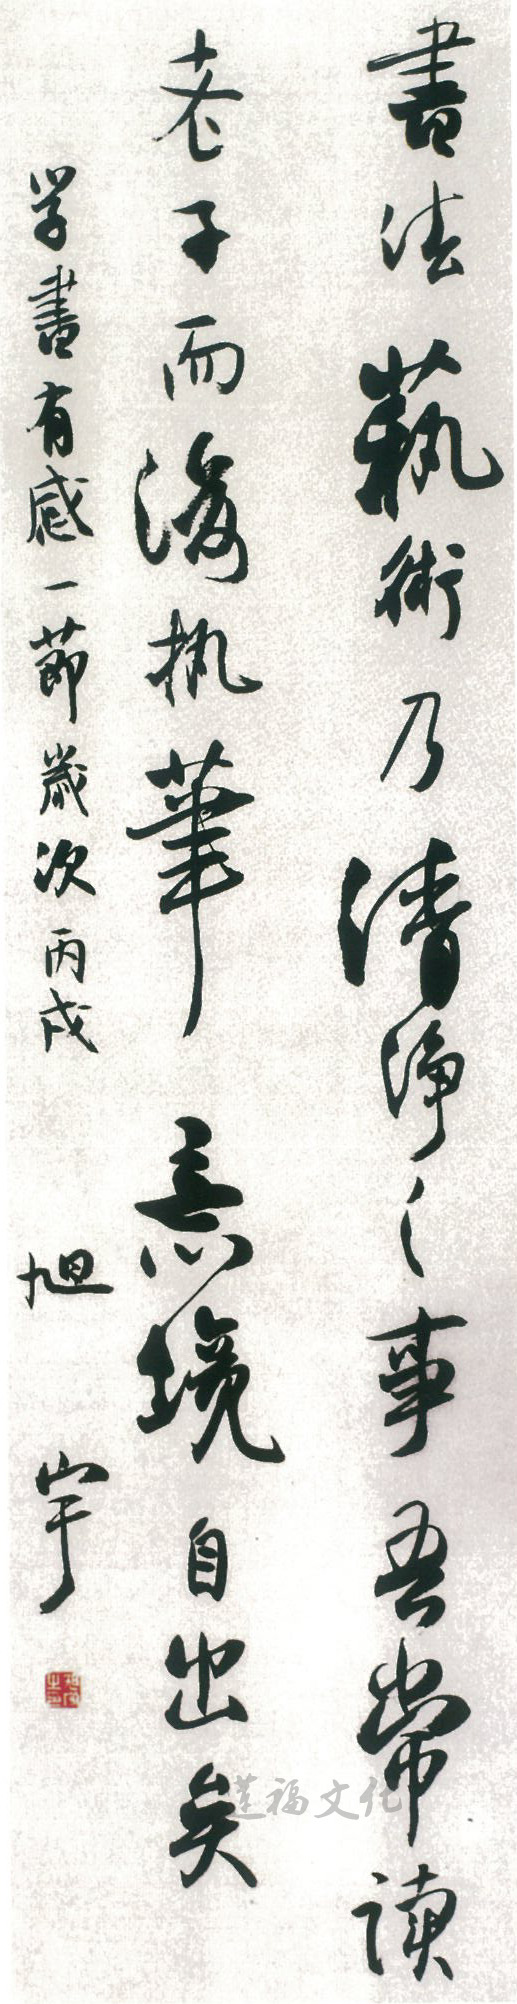 書法藝術乃清淨之事吾常读
老子而後执筆意境自出矣
学書有感一節歲次丙戌
旭宇
蓮福文化